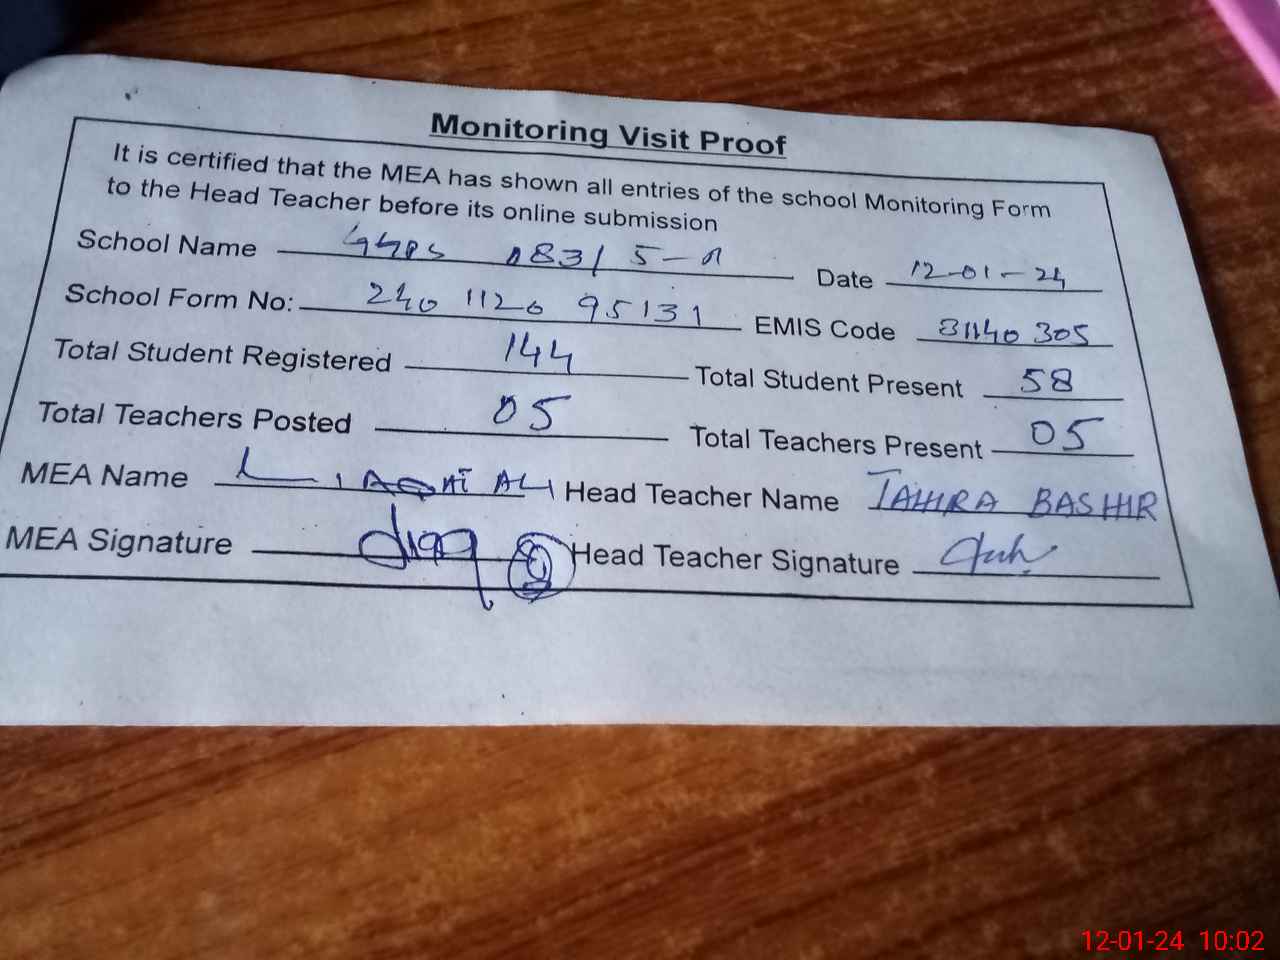 Monitoring Visit Proof
It is certified that the MEA has shown all entries of the school Monitoring Form
to the Head Teacher before its online submission
School Name GGPS 83/5-R Date 12-01-24
School Form No: 240 1120 95131 EMIS Code 31140305
Total Student Registered 144 Total Student Present 58
Total Teachers Posted 05 Total Teachers Present 05
MEA Name LIAQAT ALI Head Teacher Name TAHIRA BASHIR
MEA Signature Head Teacher Signature
12-01-24 10:02